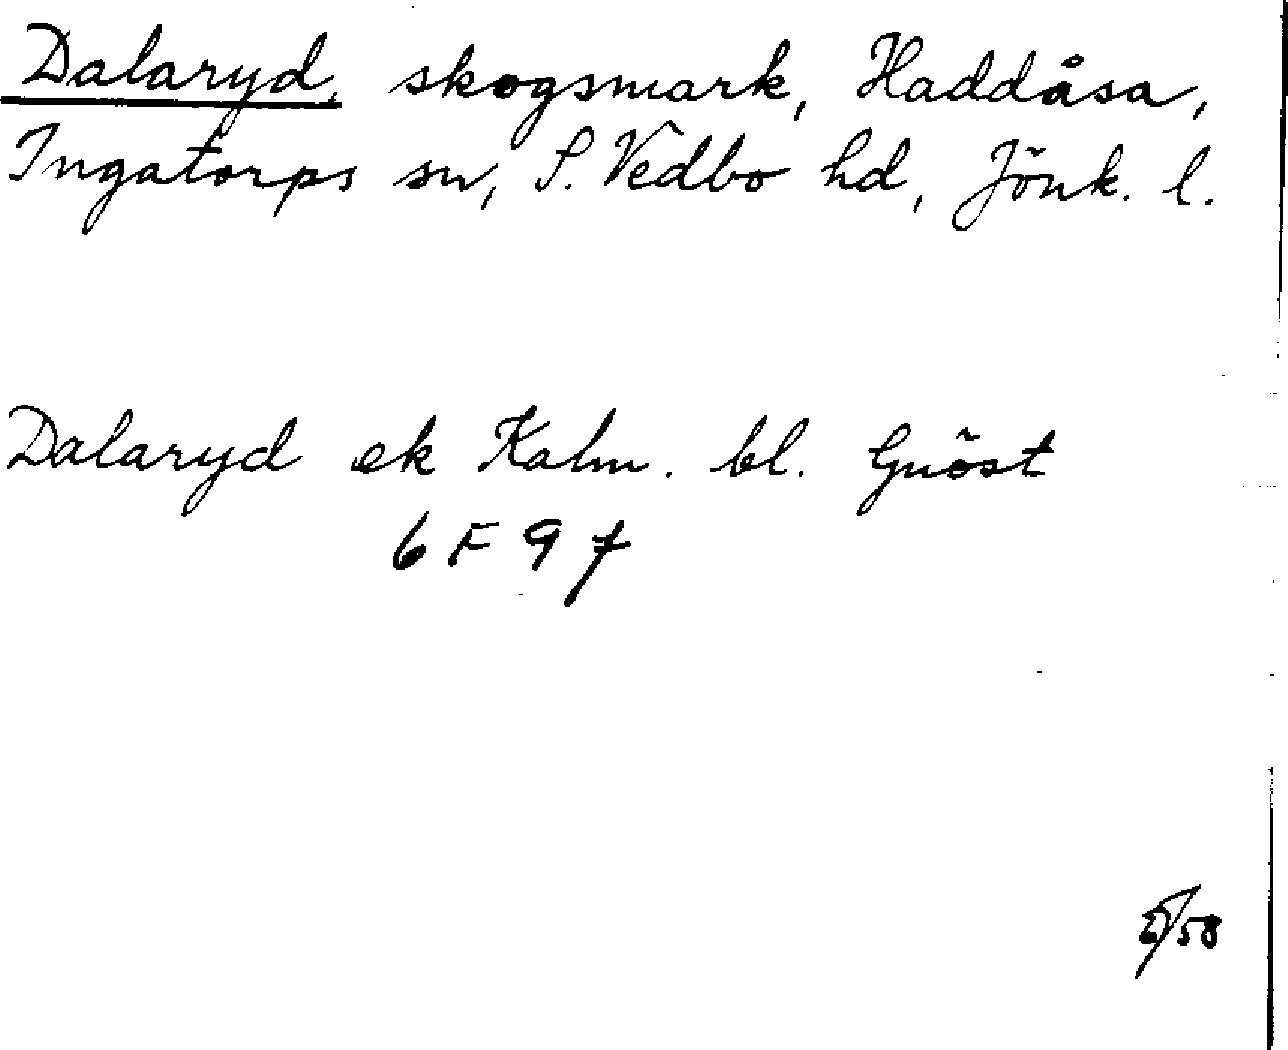 Dalaryd, skogsmark, Haddåsa,
Ingatorps sn, S. Vedbo hd, Jönk. l.
Dalaryd ek Kalm. bl. Gnöst
6 F 9 f
/58